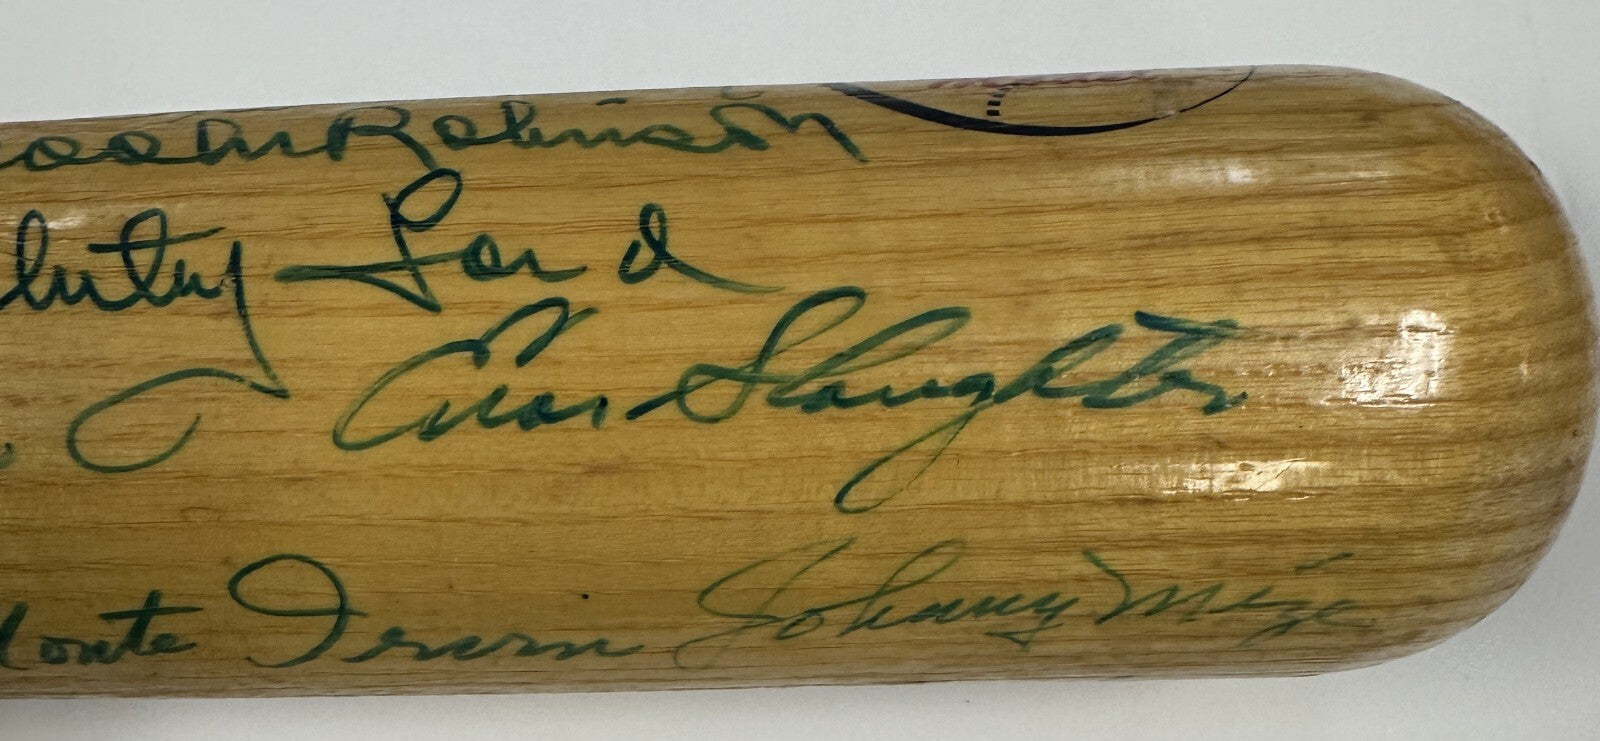 Robinson
Whitey Ford
Enos Slaughter
Monte Irvin Johnny Mize